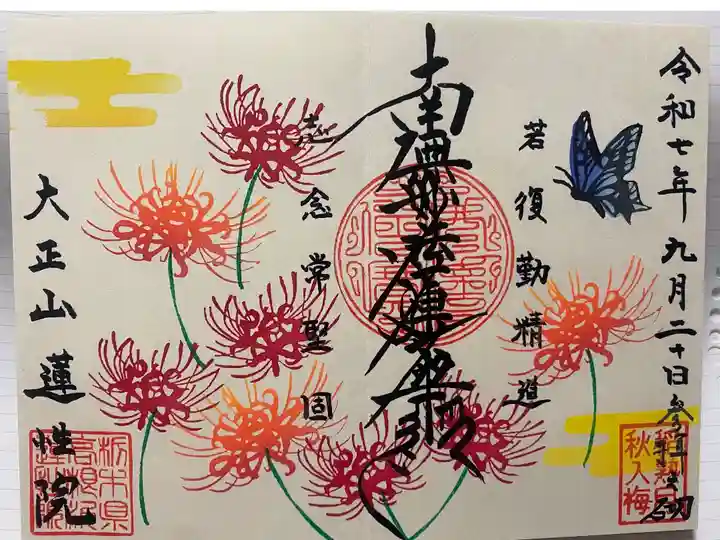 令和七年九月二十日参拝之砌
若復勤精進
南無妙法蓮華経
志念常堅固
大正山蓮性院
稲熟月
秋入梅
栃木県
高根沢